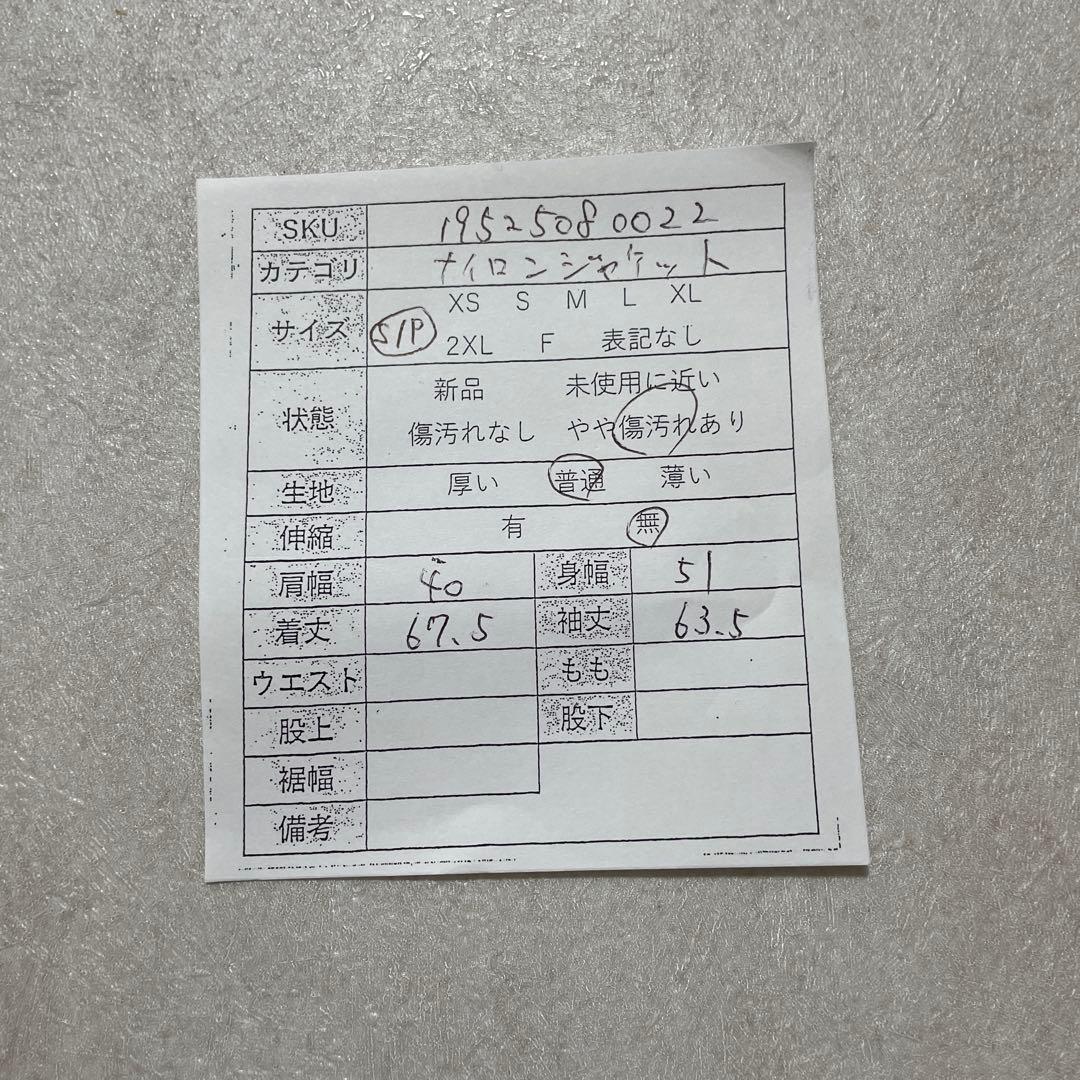 SKU 19525080022
カテゴリ ナイロンジャケット
サイズ S/P XS S M L XL
2XL F 表記なし
状態 新品 未使用に近い
傷汚れなし やや傷汚れあり
生地 厚い 普通 薄い
伸縮 有 無
肩幅 40 身幅 51
着丈 67.5 袖丈 63.5
ウエスト もも
股上 股下
裾幅
備考